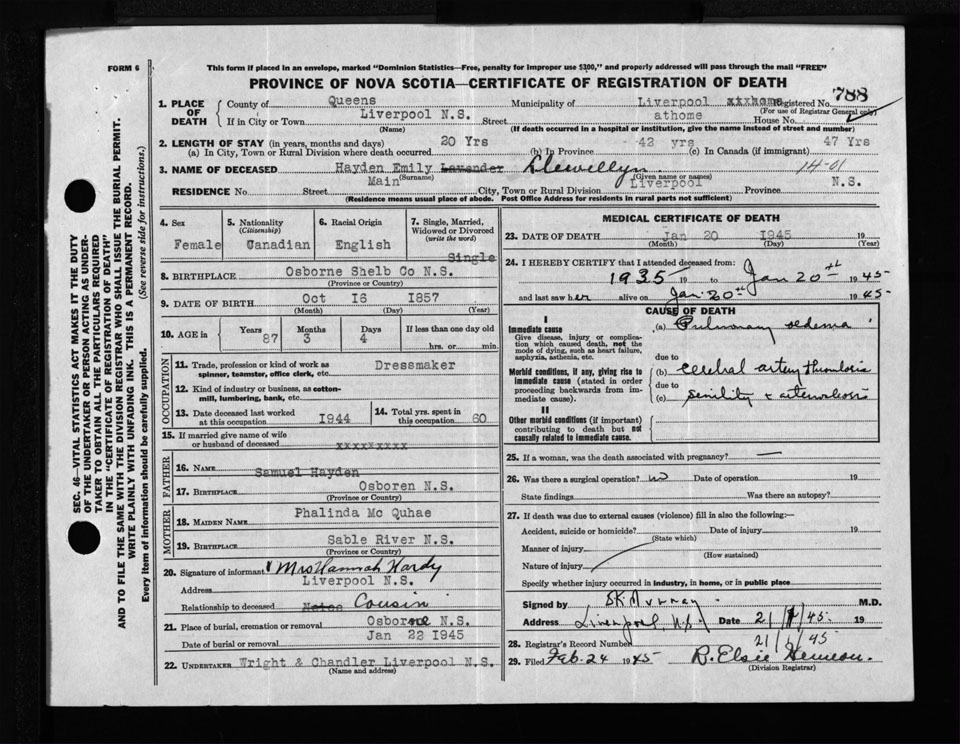 FORM 6
This form if placed in an envelope, marked "Dominion Statistics—Free, penalty for improper use $300," and properly addressed will pass through the mail "FREE"
PROVINCE OF NOVA SCOTIA—CERTIFICATE OF REGISTRATION OF DEATH
788
1. PLACE OF DEATH { County of Queens Municipality of Liverpool xxxhome Registered No.
(For use of Registrar General only)
If in City or Town Liverpool N.S. Street athome House No.
(Name) (If death occurred in a hospital or institution, give the name instead of street and number)
2. LENGTH OF STAY (in years, months and days)
(a) In City, Town or Rural Division where death occurred. 20 Yrs (b) In Province 42 yrs (c) In Canada (if immigrant) 47 Yrs
3. NAME OF DECEASED Hayden Emily Lavander Llewellyn 14-01
(Surname) (Given name or names)
RESIDENCE No. Main Street City, Town or Rural Division Liverpool Province N.S.
(Residence means usual place of abode. Post Office Address for residents in rural parts not sufficient)
4. Sex Female
5. Nationality (Citizenship) Canadian
6. Racial Origin English
7. Single, Married, Widowed or Divorced (write the word) Single
8. BIRTHPLACE Osborne Shelb Co N.S.
(Province or Country)
9. DATE OF BIRTH Oct 16 1857
(Month) (Day) (Year)
10. AGE in Years 87 Months 3 Days 4 If less than one day old hrs. or min.
OCCUPATION
11. Trade, profession or kind of work as spinner, teamster, office clerk, etc. Dressmaker
12. Kind of industry or business, as cotton-mill, lumbering, bank, etc.
13. Date deceased last worked at this occupation 1944
14. Total yrs. spent in this occupation 60
15. If married give name of wife or husband of deceased xxxxxxxxx
FATHER
16. NAME Samuel Hayden
17. BIRTHPLACE Osboren N.S.
(Province or Country)
MOTHER
18. MAIDEN NAME Phalinda Mc Quhae
19. BIRTHPLACE Sable River N.S.
(Province or Country)
20. Signature of informant Mrs Hannah Hardy
Address Liverpool N.S.
Relationship to deceased Cousin
21. Place of burial, cremation or removal Osborne N.S.
Date of burial or removal Jan 22 1945
22. UNDERTAKER Wright & Chandler Liverpool N.S.
(Name and address)
MEDICAL CERTIFICATE OF DEATH
23. DATE OF DEATH Jan 20 1945 19
(Month) (Day) (Year)
24. I HEREBY CERTIFY that I attended deceased from:
1935 19 to Jan 20th 1945
and last saw her alive on Jan. 20th 1945
CAUSE OF DEATH
I
Immediate cause
Give disease, injury or complication which caused death, not the mode of dying, such as heart failure, asphyxia, asthenia, etc.
(a) Pulmonary oedema
due to
Morbid conditions, if any, giving rise to immediate cause (stated in order proceeding backwards from immediate cause).
(b) cerebral artery thrombosis
due to
(c) senility &
II
Other morbid conditions (if important) contributing to death but not causally related to immediate cause.
25. If a woman, was the death associated with pregnancy? —
26. Was there a surgical operation? no Date of operation 19
State findings Was there an autopsy?
27. If death was due to external causes (violence) fill in also the following:—
Accident, suicide or homicide? Date of injury 19
(State which)
Manner of injury
(How sustained)
Nature of injury
Specify whether injury occurred in industry, in home, or in public place
Signed by Murray M.D.
Address Liverpool, N.S. Date 21/1/45 19
28. Registrar's Record Number 21/1/45
29. Filed Feb. 24 1945 R. Elsie
(Division Registrar)
SEC. 46—VITAL STATISTICS ACT MAKES IT THE DUTY OF THE UNDERTAKER OR PERSON ACTING AS UNDERTAKER TO OBTAIN ALL THE PARTICULARS REQUIRED IN THE "CERTIFICATE OF REGISTRATION OF DEATH" AND TO FILE THE SAME WITH THE DIVISION REGISTRAR WHO SHALL ISSUE THE BURIAL PERMIT.
WRITE PLAINLY WITH UNFADING INK. THIS IS A PERMANENT RECORD.
Every item of information should be carefully supplied. (See reverse side for instructions.)